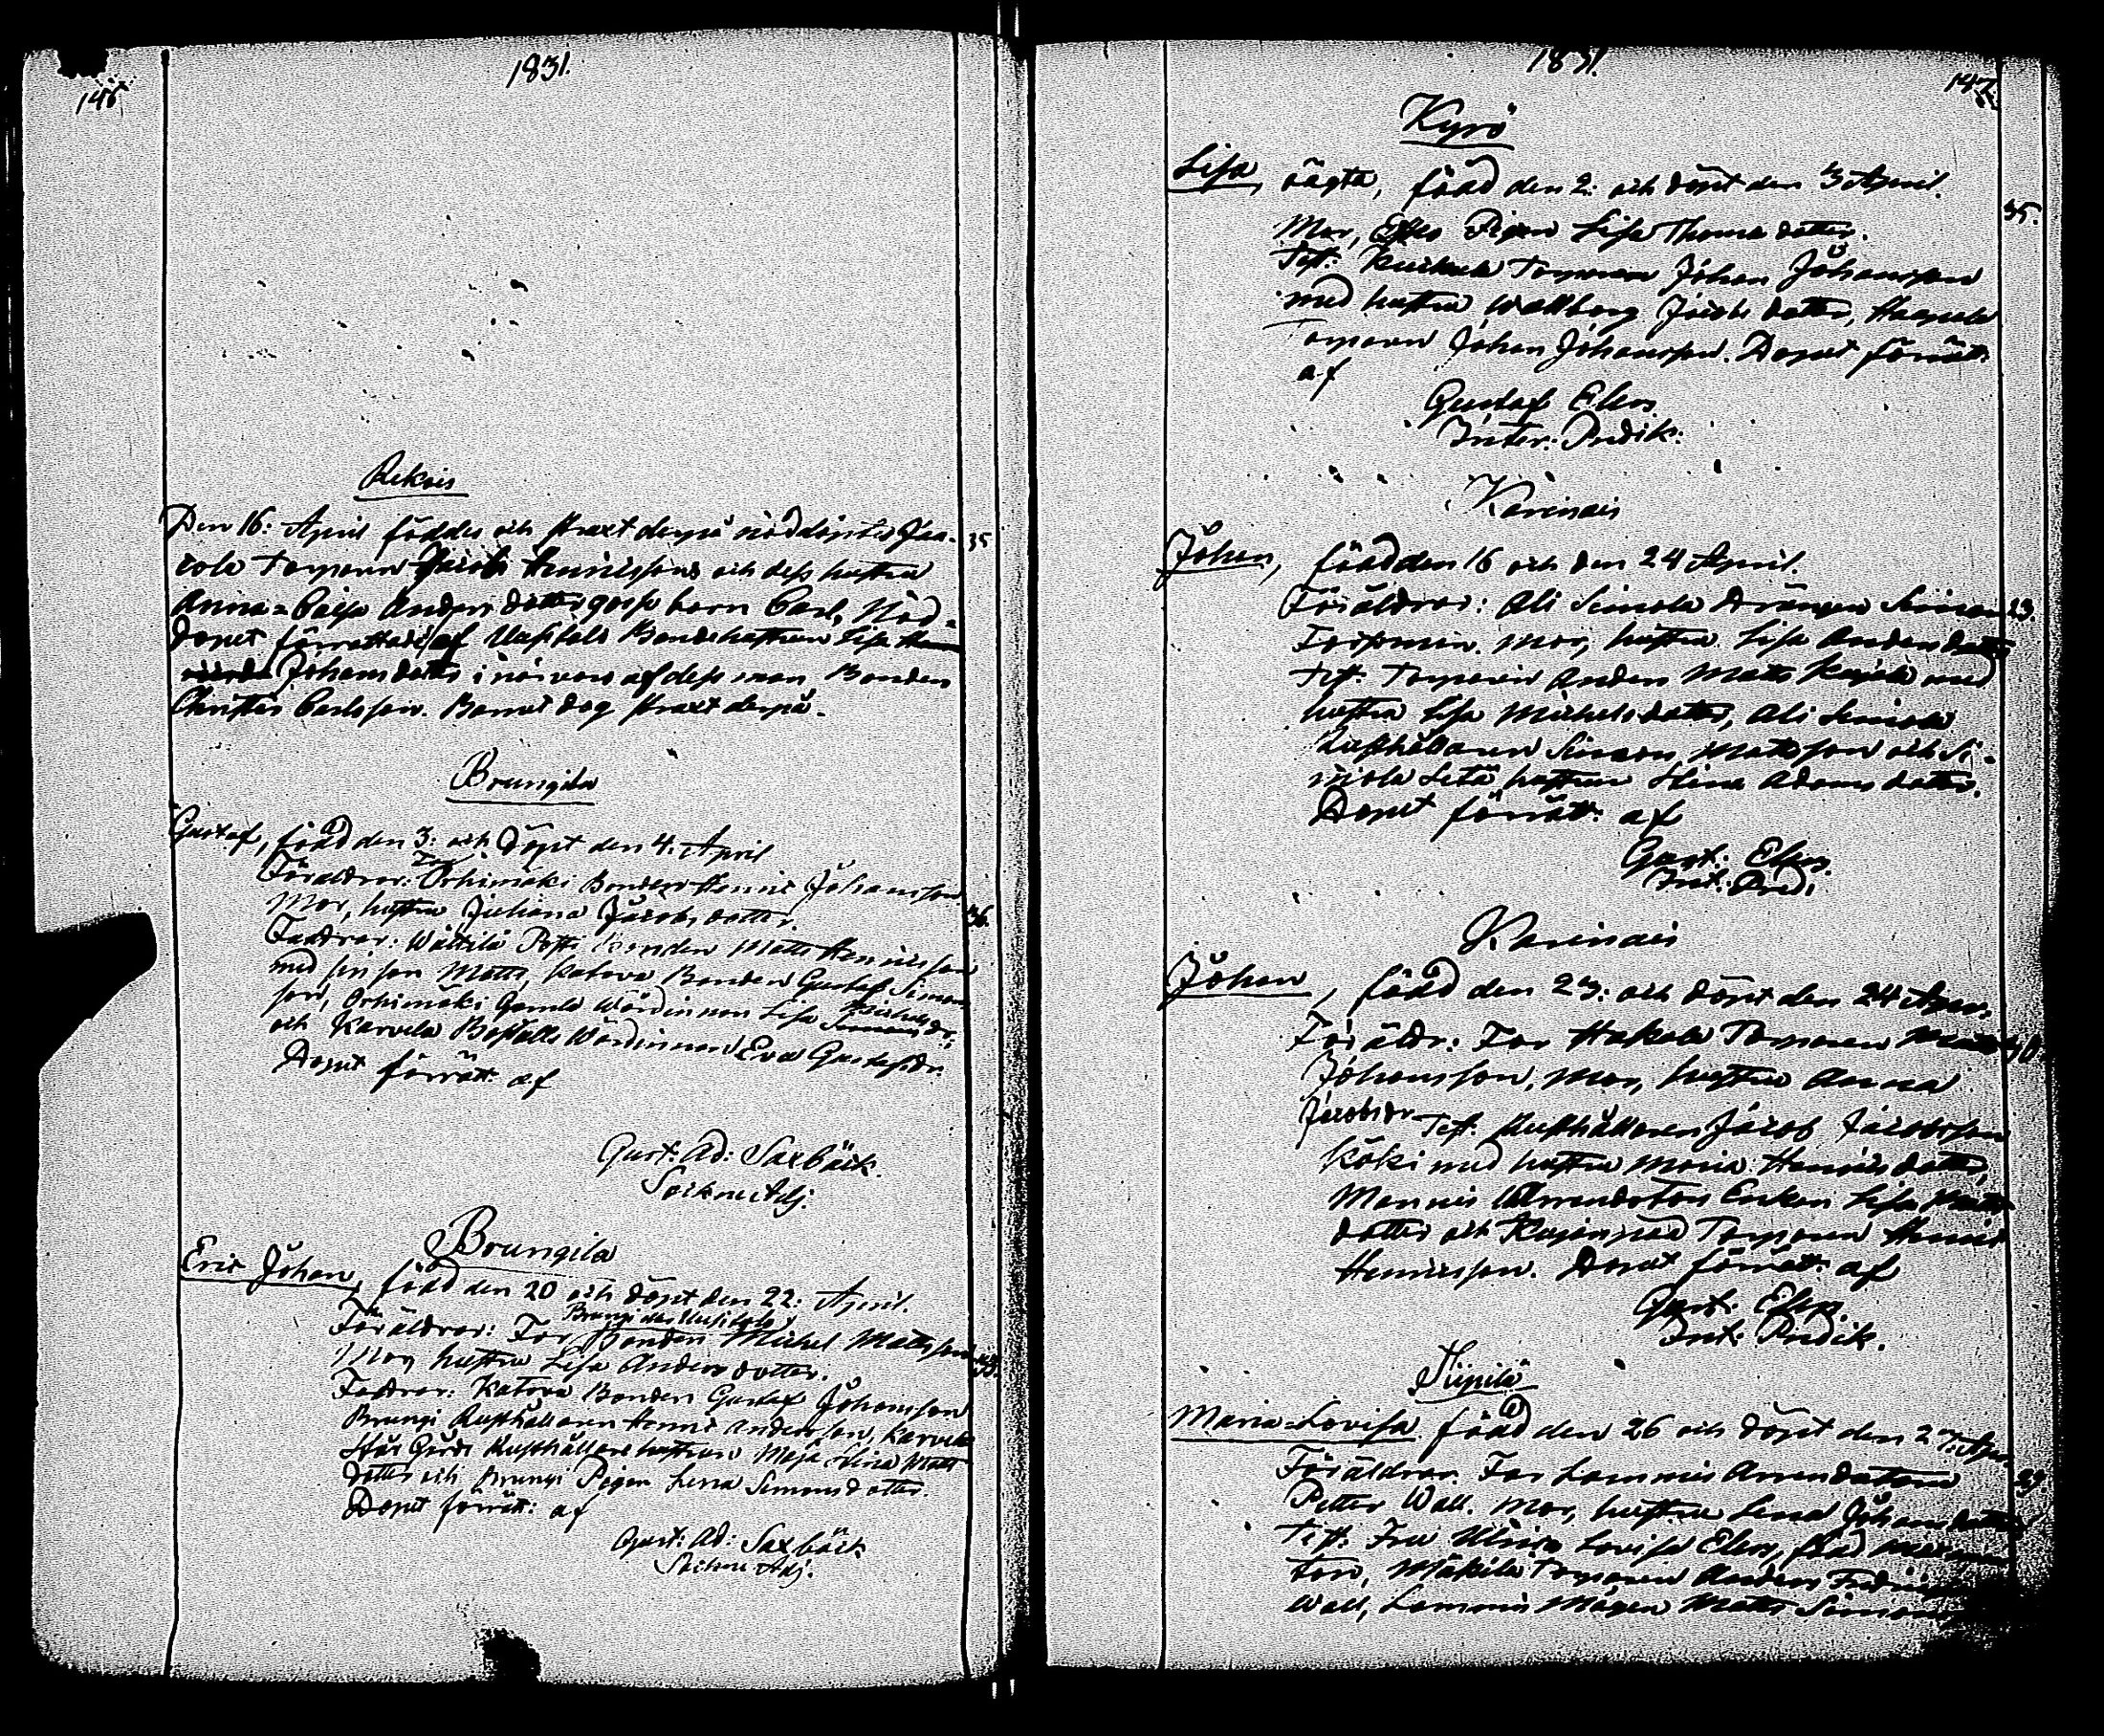 1831.
146
Rekois
Den 16: April föddes och straxt derpå nöddöptes Jaa-
35
kola Torparn Jacob Henricssons och dess hustru
Anna=Caisa Andersdotters gosse barn Carl, Nöd=
dopet förrättades af Uusitalo Bondehustrun Lisa
Johansdotter i närvaro af dess man Bonden
Christer Carlsson. Barnet dog straxt derpå.
Brungila
Gustaf, född den 3: och döpt den 4: April
Föräldrar: Far Orhimäki Bonden Henric Johansson
Mor, hustru Juliana Jacobsdotter.
36.
Faddrar: Wältilä Potti Bonden Matts Henricsson
med sin son Matts, Katova Bonden Gustaf Simons
son, Orhimäki Gamla Wärdinnan Lisa Michelsdr:
och Karvela Boställs Wärdinnan Eva Gustafsdr.
Dopet förrätt: af
Gust: Ad: Saxbäck.
Sockne Adj:
Brungila
Eric Johan, född den 20 och döpt den 22: April.
Brungi Uusitalo
Föräldrar: Far Bonden Michel Mattsson
Mor, hustru Lisa Andersdotter.
33.
Faddrar: Katova Bonden Gustaf Johansson
Brungi Rusthållaren Henric Andersson, Karvela
Stor Gårds Rusthållare hustrun Maja Stina Matts
dotter och Brungi Pigan Lena Simonsdotter.
Dopet förrätt: af
Gust: Ad: Saxbäck
Sockne Adj.
1831.
147.
Kyrö
Lisa, oägta, född den 2: och döpt den 3 April.
35.
Mor, Pigan Lisa Thomasdotter.
Test: Torparen Johan Johansson
med hustru Wallborg Jacobsdotter,
Torparn Johan Johansson. Dopet förrätt:
af
Gustaf Elers.
Inter: Predik:
Karinais
Johan, född den 16 och den 24 April.
Föräldrar: Ali Simola Drängen Simon
23.
mor, hustru Lisa Andersdotter
Test: Torparen Anders Matts med
hustru Lisa Michelsdotter, Ali Simola
Rusthållaren Simon Mattsson och Si-
mola hustrun Stina Adamsdotter.
Dopet förrätt: af
Gust: Elers.
Int: Pred:
Karinais
Johan, född den 23: och döpt den 24 Apr.
Föräldr: Far Hakola Torparen Matts
30
Johansson, mor, hustru Anna
Jacobsdr
Test: Rusthållaren Jacob Jacobsson
Köki med hustru Maria Henricsdotter,
Mannis Arrendators Enkan Lisa Matts
dotter och Torparen Henric
Henricsson. Dopet förrätt: af
Gust: Elers.
Int: Predik.
Tiipilä
Maria=Lovisa född den 26 och döpt den 27: Apr.
Föräldrar. Far Lammis Arrendatorn
39
Petter Wall. Mor, hustru Lena Johansdotter
Test: Fru Ulrica Lovisa Elers, född
Mäkilä Torparen Anders
Wall, Lammis Mågen Matts Simons